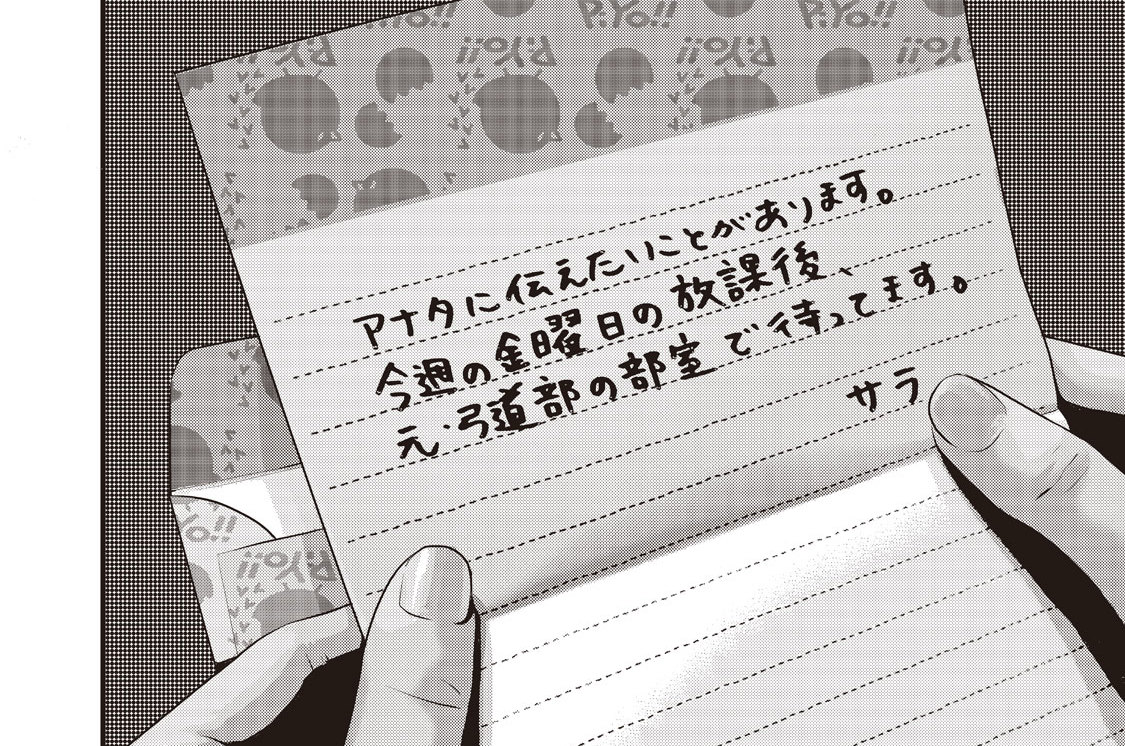 P.Yo!!
P.Yo!!
P.Yo!!
P.Yo!!
P.Yo!!
P.Yo!!
アナタに伝えたいことがあります。
今週の金曜日の放課後、
元・弓道部の部室で待ってます。
サラ
Yo!!
P.Yo!!